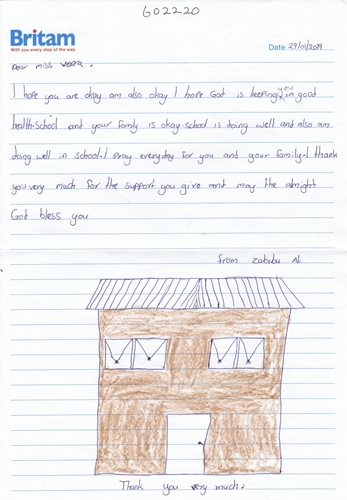 602220
Britam
With you every step of the way
Date 29/01/2017
Dear miss
I hope you are okay am also okay I hope God is keeping you in good
health. School and your family is okay. school is doing well and also am
doing well in school. I pray everyday for you and your family. I thank
you very much for the support you give and may the almight
God bless you
from zabibu Al
Thank you very much.